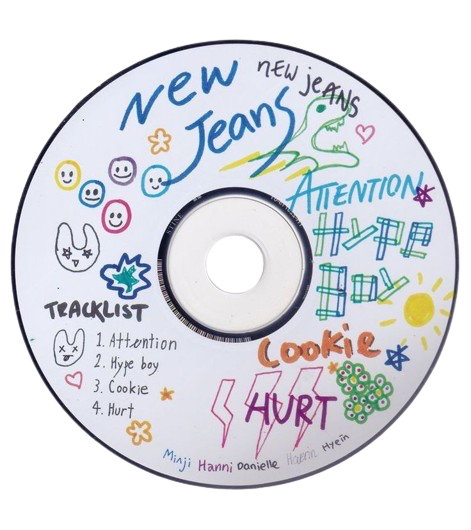 New
Jeans
NEW JEANS
ATTENTION
Hype
Boy
TRACKLIST
1. Attention
2. Hype boy
3. Cookie
4. Hurt
Cookie
HURT
Minji Hanni Danielle Haerin Hyein